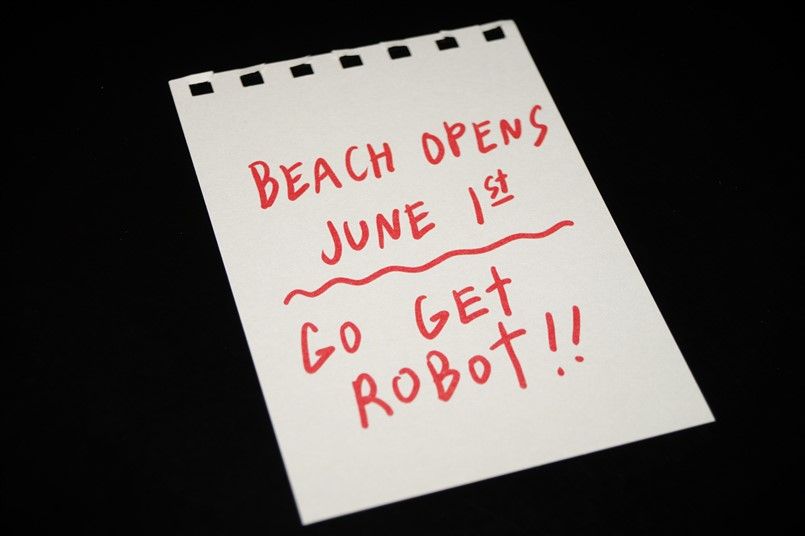 BEACH OPENS
JUNE 1st
GO GEt
ROBOt!!